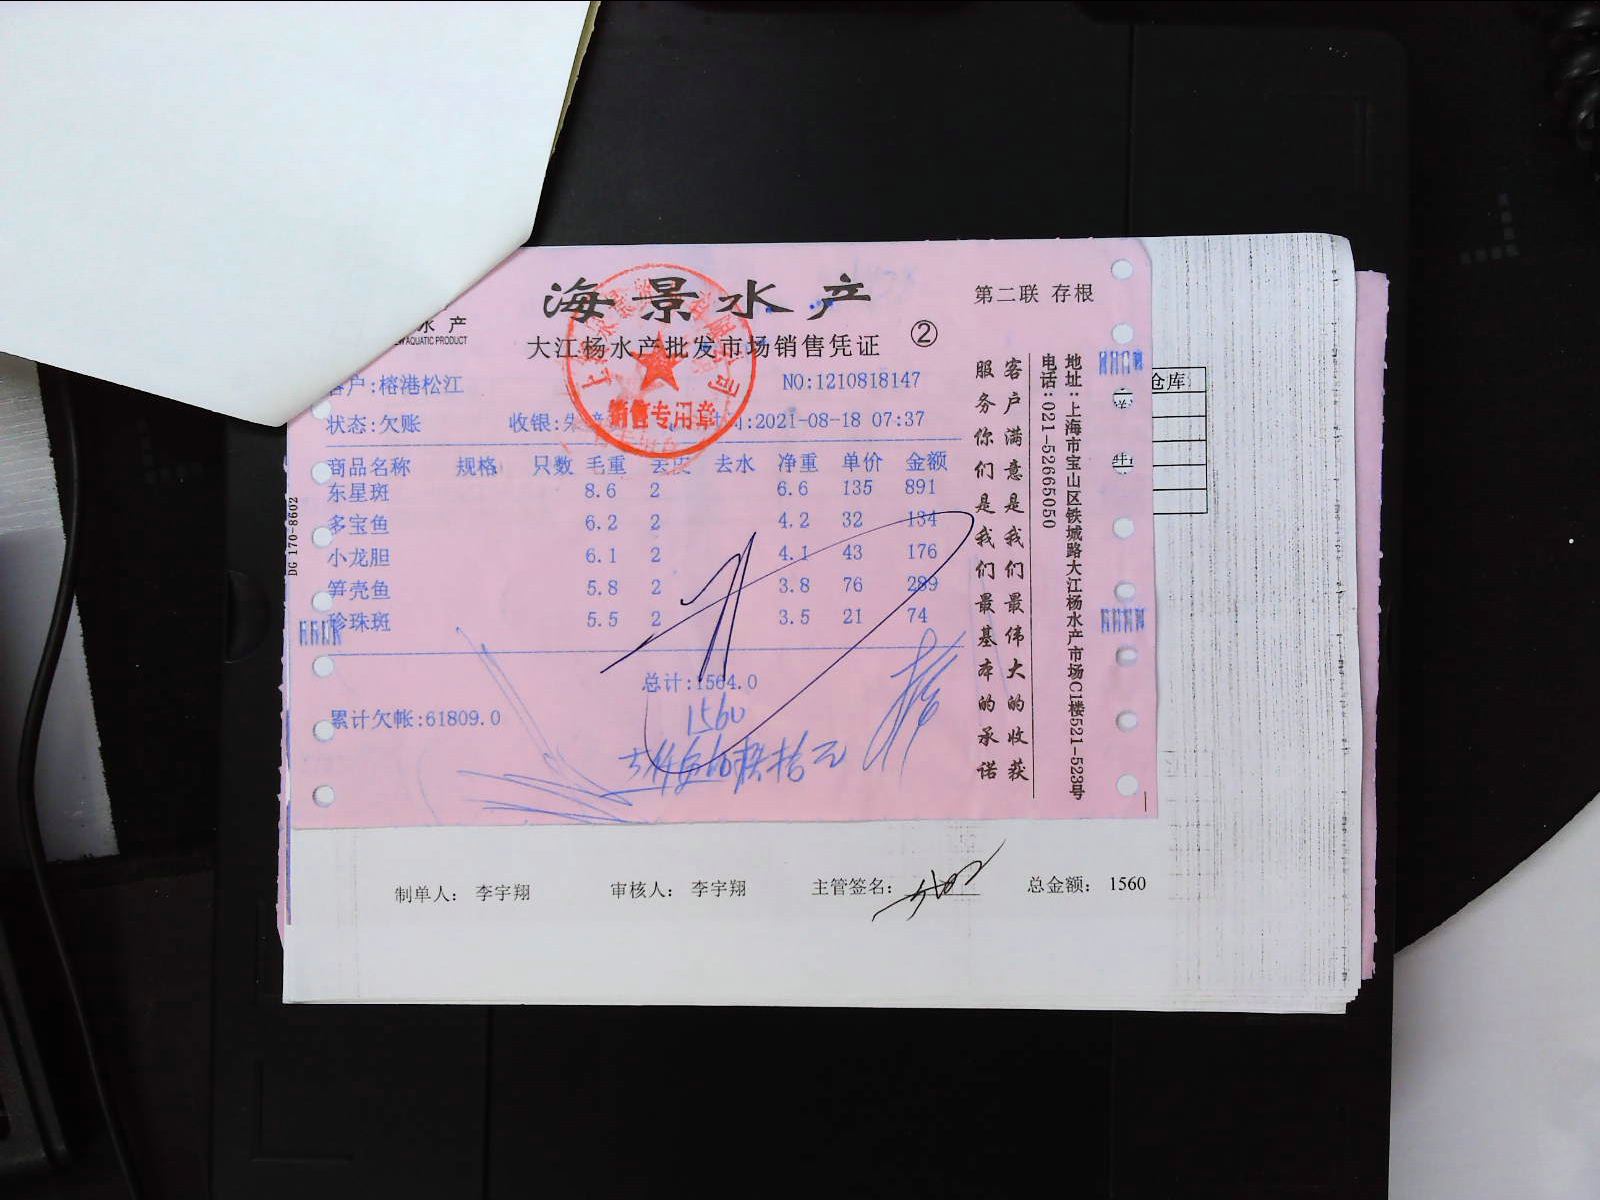 海景水产
第二联 存根
水产
AQUATIC PRODUCT
大江杨水产批发市场销售凭证 ②
客户:榕港松江
NO:1210818147
状态:欠账
收银:朱
:2021-08-18 07:37
销售专用章
商品名称 规格 只数 毛重 去皮 去水 净重 单价 金额
东星斑 8.6 2 6.6 135 891
多宝鱼 6.2 2 4.2 32 134
小龙胆 6.1 2 4.1 43 176
笋壳鱼 5.8 2 3.8 76 289
珍珠斑 5.5 2 3.5 21 74
总计:1564.0
1560
累计欠帐:61809.0
客户满意是我们最伟大的收获
服务你们是我们最基本的承诺
地址:上海市宝山区铁城路大江杨水产市场C1楼521-523号
电话:021-52665050
DG 170-8602
仓库
制单人: 李宇翔 审核人: 李宇翔 主管签名: 总金额: 1560